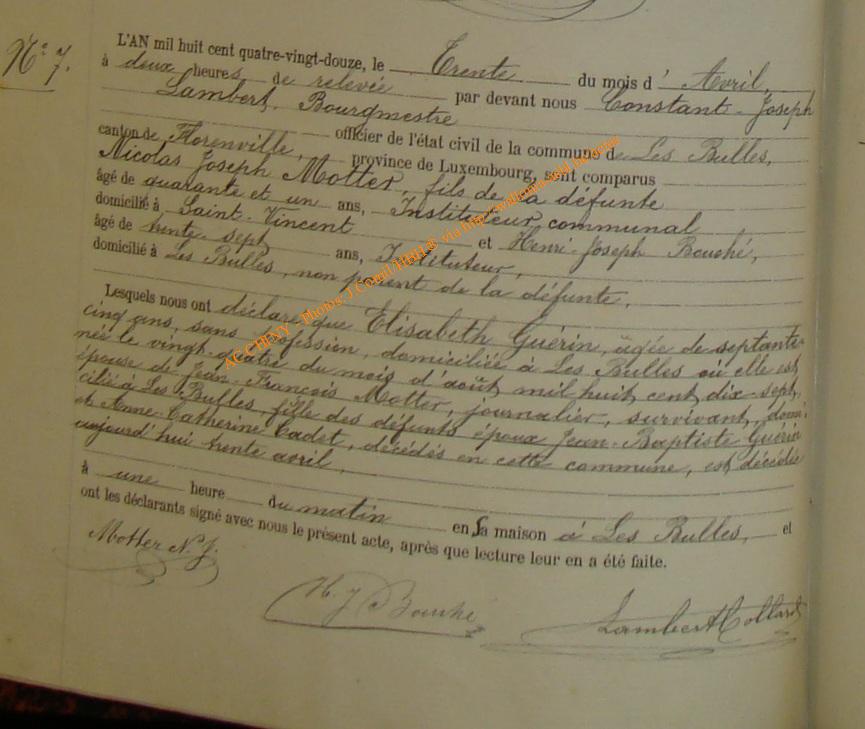 N° 7.
L'AN mil huit cent quatre-vingt-douze, le Trente du mois d' Avril,
à deux heures de relevée par devant nous Constant-Joseph
Lambert, Bourgmestre
officier de l'état civil de la commune de Les Bulles,
canton de Florenville, province de Luxembourg, sont comparus
Nicolas Joseph Motter, fils de la défunte
âgé de quarante et un ans, Instituteur communal
domicilié à Saint-Vincent et Henri-Joseph Bouché,
âgé de trente-sept ans, Instituteur,
domicilié à Les Bulles, non parent de la défunte.
Lesquels nous ont déclaré que Elisabeth Guérin, âgée de septante-
cinq ans, sans profession, domiciliée à Les Bulles où elle est
née le vingt-quatre du mois d'août mil huit cent dix-sept,
épouse de Jean-François Motter, journalier, survivant, domi-
cilié à Les Bulles, fille des défunts époux Jean-Baptiste Guérin
et Anne-Catherine Cadet, décédés en cette commune, est décédée
aujourd'hui trente avril,
à une heure du matin en sa maison à Les Bulles, et
ont les déclarants signé avec nous le présent acte, après que lecture leur en a été faite.
Motter N. J.
H J Bouché
Lambert Collard
AC CHINY - Photos: J.Cornil HHH® via